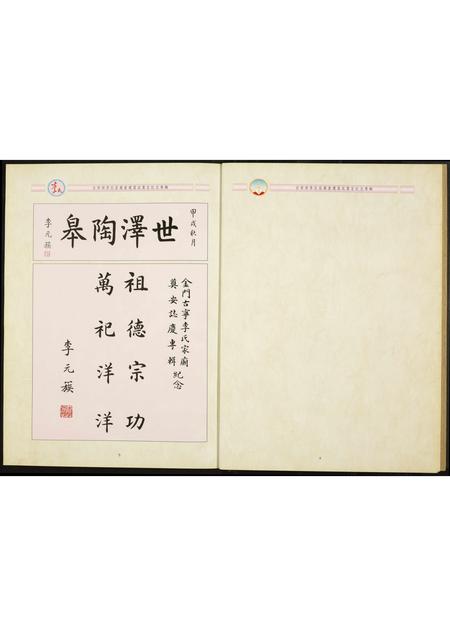 李氏
甲戌秋月
世澤陶皋
李元簇
金門古寧李氏家廟
奠安誌慶專輯紀念
祖德宗功
萬祀洋洋
李元簇